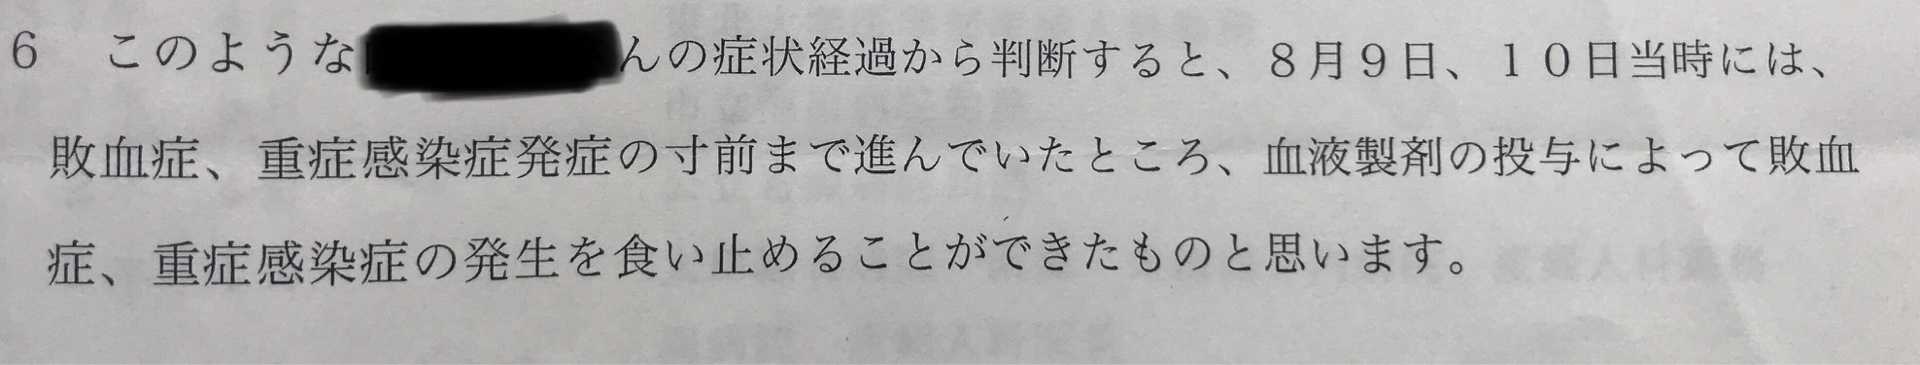 6 このような んの症状経過から判断すると、８月９日、１０日当時には、
敗血症、重症感染症発症の寸前まで進んでいたところ、血液製剤の投与によって敗血
症、重症感染症の発生を食い止めることができたものと思います。